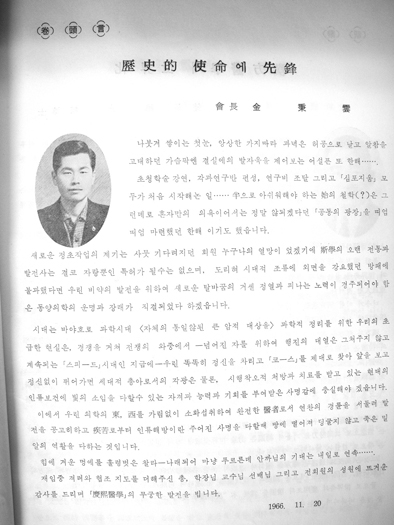 卷 頭 言
歷史的 使命에 先鋒
會長 金 秉 雲
나붓겨 쌓이는 첫눈, 앙상한 가지마다 과녁은 허공으로 날고 알참을
고대하던 가슴팍엔 결실에의 발자욱을 제어보는 어설픈 또 한해……
초청학술 강연, 작과연구반 편성, 연구비 조달 그리고 「심포지움」 모
두가 처음 시작해는 일…… 후으로 아쉬워해야 하는 飴의 철학(?)은 그
런데로 혼자만의 의욕이어서는 정말 않되겠다던 「공동의 광장」을 띄엄
띄엄 마련했던 한해 이기도 했읍니다.
새로운 정초작업의 제기는 사뭇 기다려지던 회원 누구나의 열망이 있었기에 斯學의 오랜 전통과
발전사는 결코 자랑뿐인 특허가 될수는 없으며, 도리혀 시대적 조류에 외면을 강요했던 방패에
불과했다면 우린 비약의 발전을 위하여 새로운 탈바꿈의 거센 정열과 피나는 노력이 경주되어야 함
은 동양의학의 운명과 장래가 직결되었다 하겠습니다.
시대는 바야흐로 과학시대 과학적 정리를 위한 우리의 초
급한 현실은, 경쟁을 거쳐 전쟁의 와중에서 —넘어진 자를 위하여 행진의 대열은 그쳐주지 않고
계속되는 「스피—드」시대인 지금에—우린 똑똑히 정신을 차리고 「코—스」를 제대로 찾아 앞을 보고
정신없이 뛰어가면 세대적 총아로서의 작황은 물론, 시행착오적 처방과 치료를 받고 있는 현재의
인류보건에 빛의 소임을 다할수 있는 자격과 능력과 기회를 부여받은 사명감에 충실해야 겠습니다.
이에서 우린 의학의 東, 西를 가림없이 소화섭취하여 완전한 醫者로서 연찬의 경륜을 서울러 발
전을 공고히하고 疾苦로부터 인류해방이란 주어진 사명을 다할때 땅에 떨어져 딩굴지 않고 죽은 밀
알의 역활을 다하는 것입니다.
힘에 겨운 멍에를 훌렁벗은 팔다—나래되어 마냥 푸르른데 안좌님의 기대는 내일로 연속……
재임중 격려와 협조 지도를 더해주신 총, 학장님 교수님 선배님 그리고 전회원의 성원에 뜨거운
감사를 드리며 「慶熙醫學」의 무궁한 발전을 빕니다.
1966. 11. 20